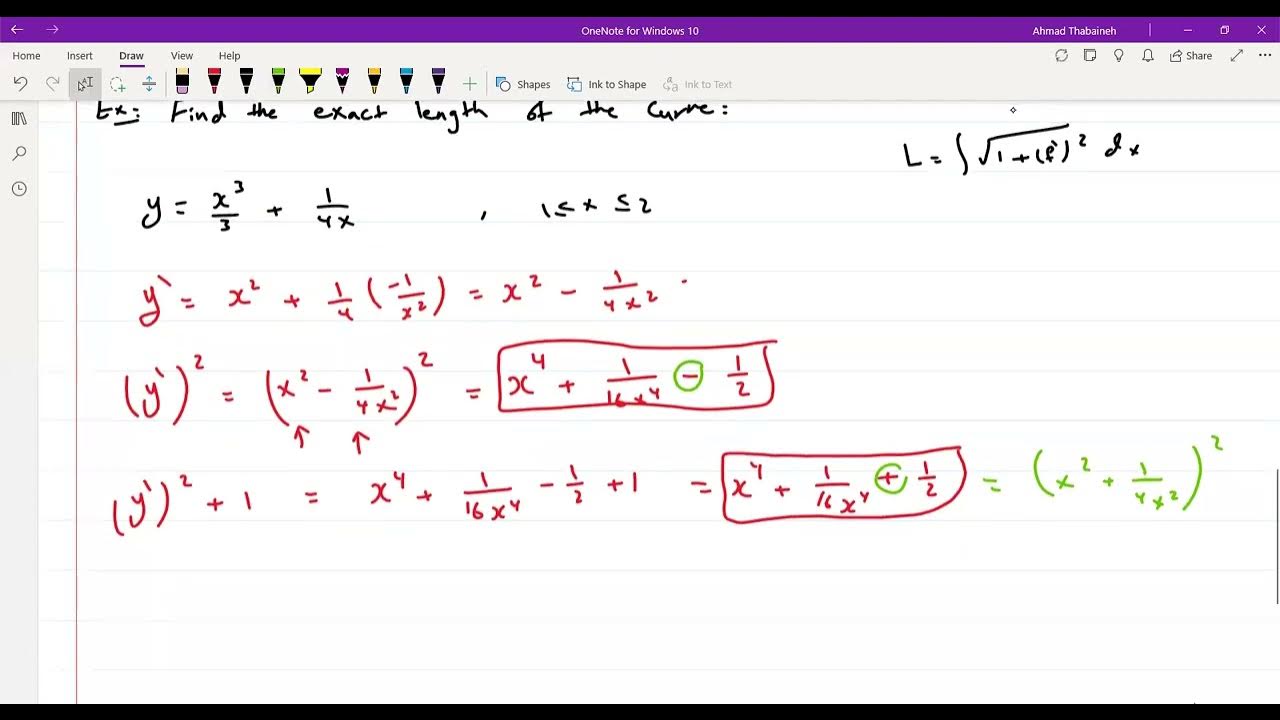 OneNote for Windows 10
Ahmad Thabaineh
Home Insert Draw View Help
Share
Shapes Ink to Shape Ink to Text
Ex: Find the exact length of the curve:
L = ∫ √(1 + (f`)² dx
y = x³/3 + 1/4x , 1 ≤ x ≤ 2
y` = x² + 1/4 (-1/x²) = x² - 1/4x²
(y`)² = (x² - 1/4x²)² = x⁴ + 1/16x⁴ - 1/2
(y`)² + 1 = x⁴ + 1/16x⁴ - 1/2 + 1 = x⁴ + 1/16x⁴ + 1/2 = (x² + 1/4x²)²